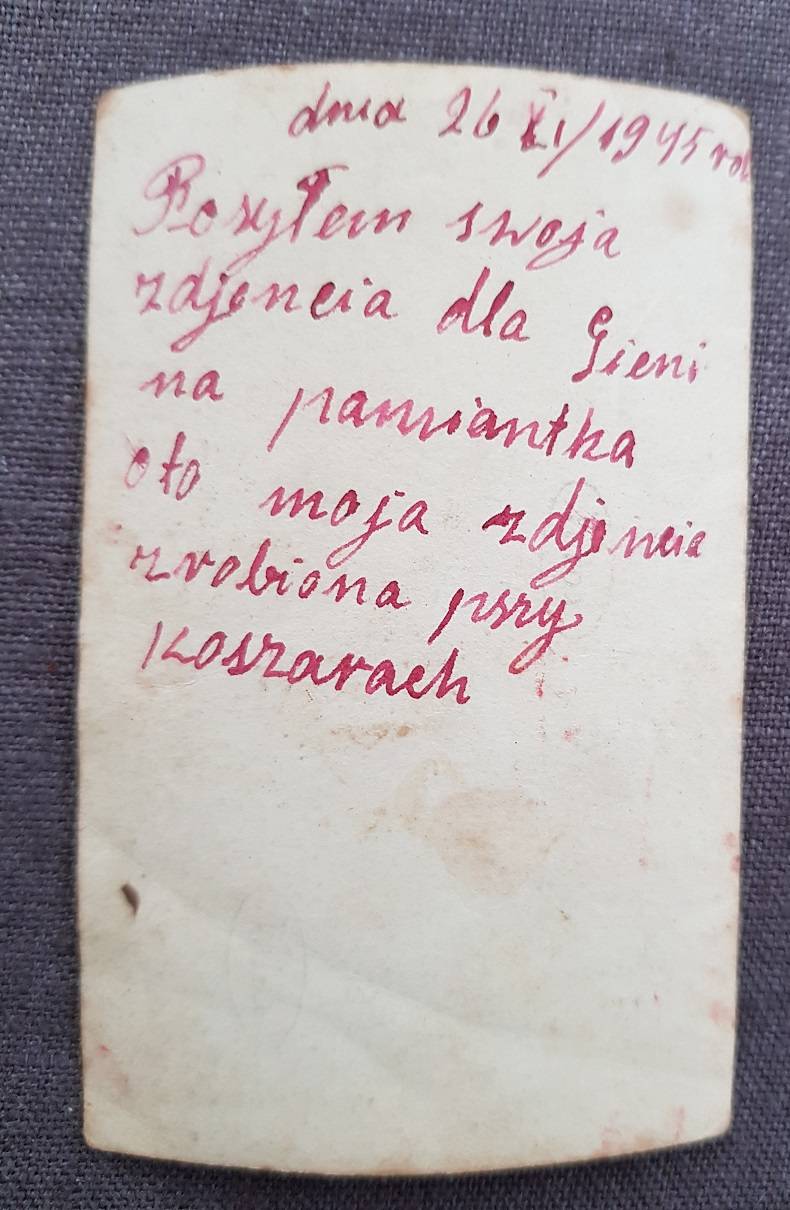 dnia 26 XI/1945 rok
Posyłem swoja
zdjencia dla Gieni
na pamiantka
oto moja zdjencia
zrobiona pszy
koszarach